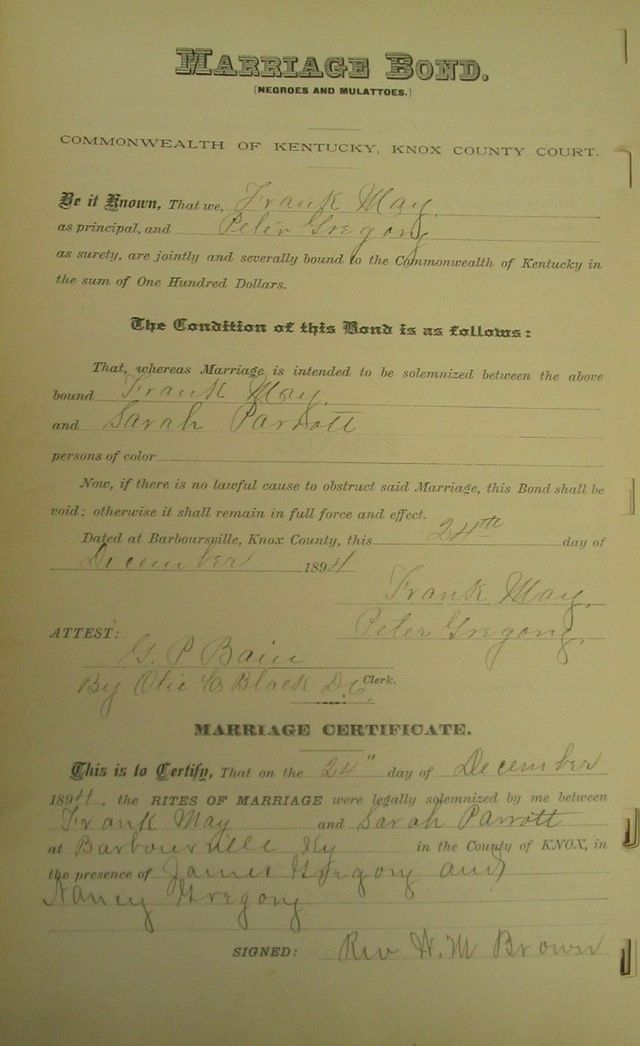 MARRIAGE BOND.
[NEGROES AND MULATTOES.]
COMMONWEALTH OF KENTUCKY, KNOX COUNTY COURT.
Be it Known, That we, Frank May,
as principal, and Peter Gregory
as surety, are jointly and severally bound to the Commonwealth of Kentucky in
the sum of One Hundred Dollars.
The Condition of this Bond is as follows:
That, whereas Marriage is intended to be solemnized between the above
bound Frank May,
and Sarah Parrott
persons of color
Now, if there is no lawful cause to obstruct said Marriage, this Bond shall be
void; otherwise it shall remain in full force and effect.
Dated at Barboursville, Knox County, this 24th day of
December 1894
Frank May,
ATTEST: Peter Gregory,
G. P Bain
By Otie C Black D.C. Clerk.
MARRIAGE CERTIFICATE.
This is to Certify, That on the 24" day of December
1894, the RITES OF MARRIAGE were legally solemnized by me between
Frank May and Sarah Parrott
at Barbourville Ky in the County of KNOX, in
the presence of James Gregory and
Nancy Gregory
SIGNED: Rev H. M Brown